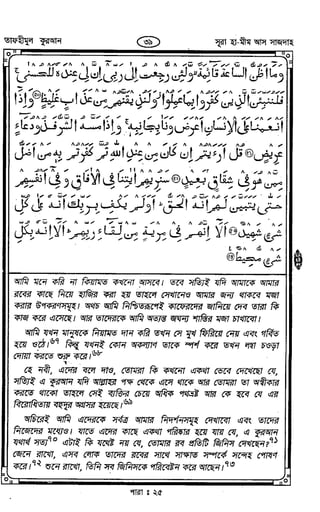 তাফহীমুল কুরআন
৩৯
সূরা হা-মীম আস সাজদাহ
وَمَا أَظُنُّ السَّاعَةَ قَائِمَةً وَلَئِنْ رُجِعْتُ إِلَىٰ رَبِّي إِنَّ لِي عِنْدَهُ لَلْحُسْنَىٰ
فَلَنُنَبِّئَنَّ الَّذِينَ كَفَرُوا بِمَا عَمِلُوا وَلَنُذِيقَنَّهُمْ مِنْ عَذَابٍ غَلِيظٍ وَإِذَا
أَنْعَمْنَا عَلَى الْإِنْسَانِ أَعْرَضَ وَنَأَىٰ بِجَانِبِهِ وَإِذَا مَسَّهُ الشَّرُّ فَذُو دُعَاءٍ
عَرِيضٍ قُلْ أَرَأَيْتُمْ إِنْ كَانَ مِنْ عِنْدِ اللَّهِ ثُمَّ كَفَرْتُمْ بِهِ مَنْ أَضَلُّ
مِمَّنْ هُوَ فِي شِقَاقٍ بَعِيدٍ سَنُرِيهِمْ آيَاتِنَا فِي الْآفَاقِ وَفِي أَنْفُسِهِمْ
حَتَّىٰ يَتَبَيَّنَ لَهُمْ أَنَّهُ الْحَقُّ أَوَلَمْ يَكْفِ بِرَبِّكَ أَنَّهُ عَلَىٰ كُلِّ
شَيْءٍ شَهِيدٌ أَلَا إِنَّهُمْ فِي مِرْيَةٍ مِنْ لِقَاءِ رَبِّهِمْ أَلَا إِنَّهُ بِكُلِّ
شَيْءٍ مُحِيطٌ
আমি মনে করি না কিয়ামত কখনো আসবে। তবে সত্যিই যদি আমাকে আমার
রবের কাছে নিয়ে হাজির করা হয় তাহলে সেখানেও আমার জন্য থাকবে মজা
করার উপকরণসমূহ। অথচ আমি নিশ্চিতরূপেই কাফেরদের জানিয়ে দেব তারা কি
কাজ করে এসেছে। আর তাদেরকে আমি অত্যন্ত জঘন্য শাস্তির মজা চাখাবো।
আমি যখন মানুষকে নিয়ামত দান করি তখন সে মুখ ফিরিয়ে নেয় এবং গর্বিত
হয়ে ওঠে।৬৭ কিন্তু যখনই কোন অকল্যাণ তাকে স্পর্শ করে তখন লম্বা চওড়া
দোয়া করতে শুরু করে।৬৮
হে নবী, এদের বলে দাও, তোমরা কি কখনো একথা ভেবে দেখেছো যে,
সত্যিই এ কুরআন যদি আল্লাহর পক্ষ থেকে এসে থাকে আর তোমরা তা অস্বীকার
করতে থাকো তাহলে সেই ব্যক্তির চেয়ে অধিক পথভ্রষ্ট আর কে হবে যে এর
বিরোধিতায় বহুদূর অগ্রসর হয়েছে।৬৯
অচিরেই আমি এদেরকে সর্বত্র আমার নিদর্শনসমূহ দেখাবো এবং তাদের
নিজেদের মধ্যেও। যাতে এদের কাছে একথা পরিষ্কার হয়ে যায় যে, এ কুরআন
যথার্থ সত্য৭০ এটাই কি যথেষ্ট নয় যে, তোমার রব প্রতিটি জিনিস দেখছেন?৭১
জেনে রাখো, এসব লোক তাদের রবের সাথে সাক্ষাত সম্পর্কে সন্দেহ পোষণ
করে।৭২ শুনে রাখো, তিনি সব জিনিসকে পরিবেষ্টন করে আছেন।৭৩
পারা : ২৫